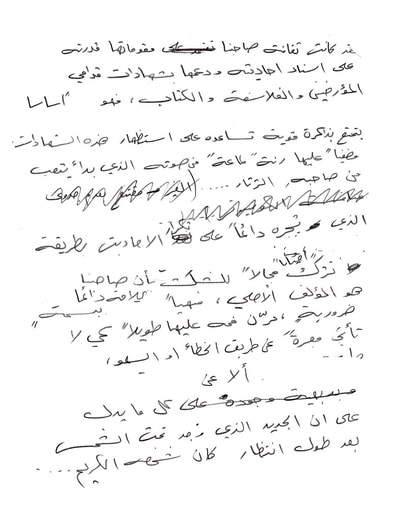 كانت ثقافة صاحبنا مقوماتها قدرته
على اسناد احاديثه ودعمها بشهادات قدامى
المؤرخين والفلاسفة والكتاب، فهو أساسا
يتمتع بذاكرة قوية تساعده على استظهار هذه الشهادات
عليها رنة في صوته الذي بدأ يتعب
من صاحبه الثرثار ....
الذي يجبره دائماً على الاحاديث بطريقة
تترك مجالاً للشك بأن صاحبنا
هو المؤلف الأصلي، دائماً
ضرورية، فمه عليها طويلاً كي لا
تأتي عن طريق الخطأ او
على كل ما يدل
على ان الجديد الذي وجد تحت الشمس
بعد طول انتظار كان شخصه الكريم ....